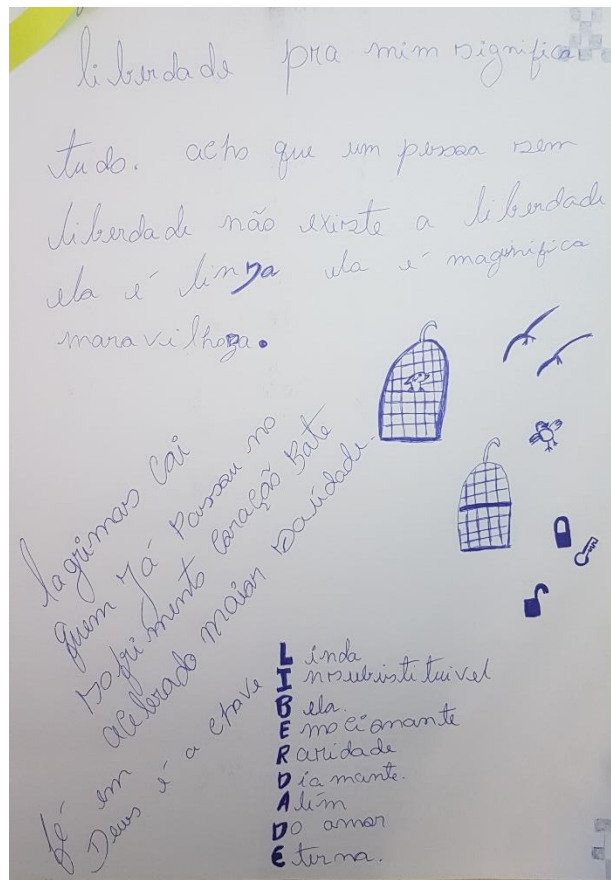 liberdade pra mim significa
tudo. acho que um pessoa sem
liberdade não existe a liberdade
ela é linda ela é magnifica
maravilhoza.
lagrimas Cai
quem Já Passou no
sofrimento Coração Bate
acelerado maior Saudade.
fé em
Deus é a chave
Linda
Insubistituivel
Bela.
Emocionante
Raridade
Diamante.
Além
Do amor
Eterna.